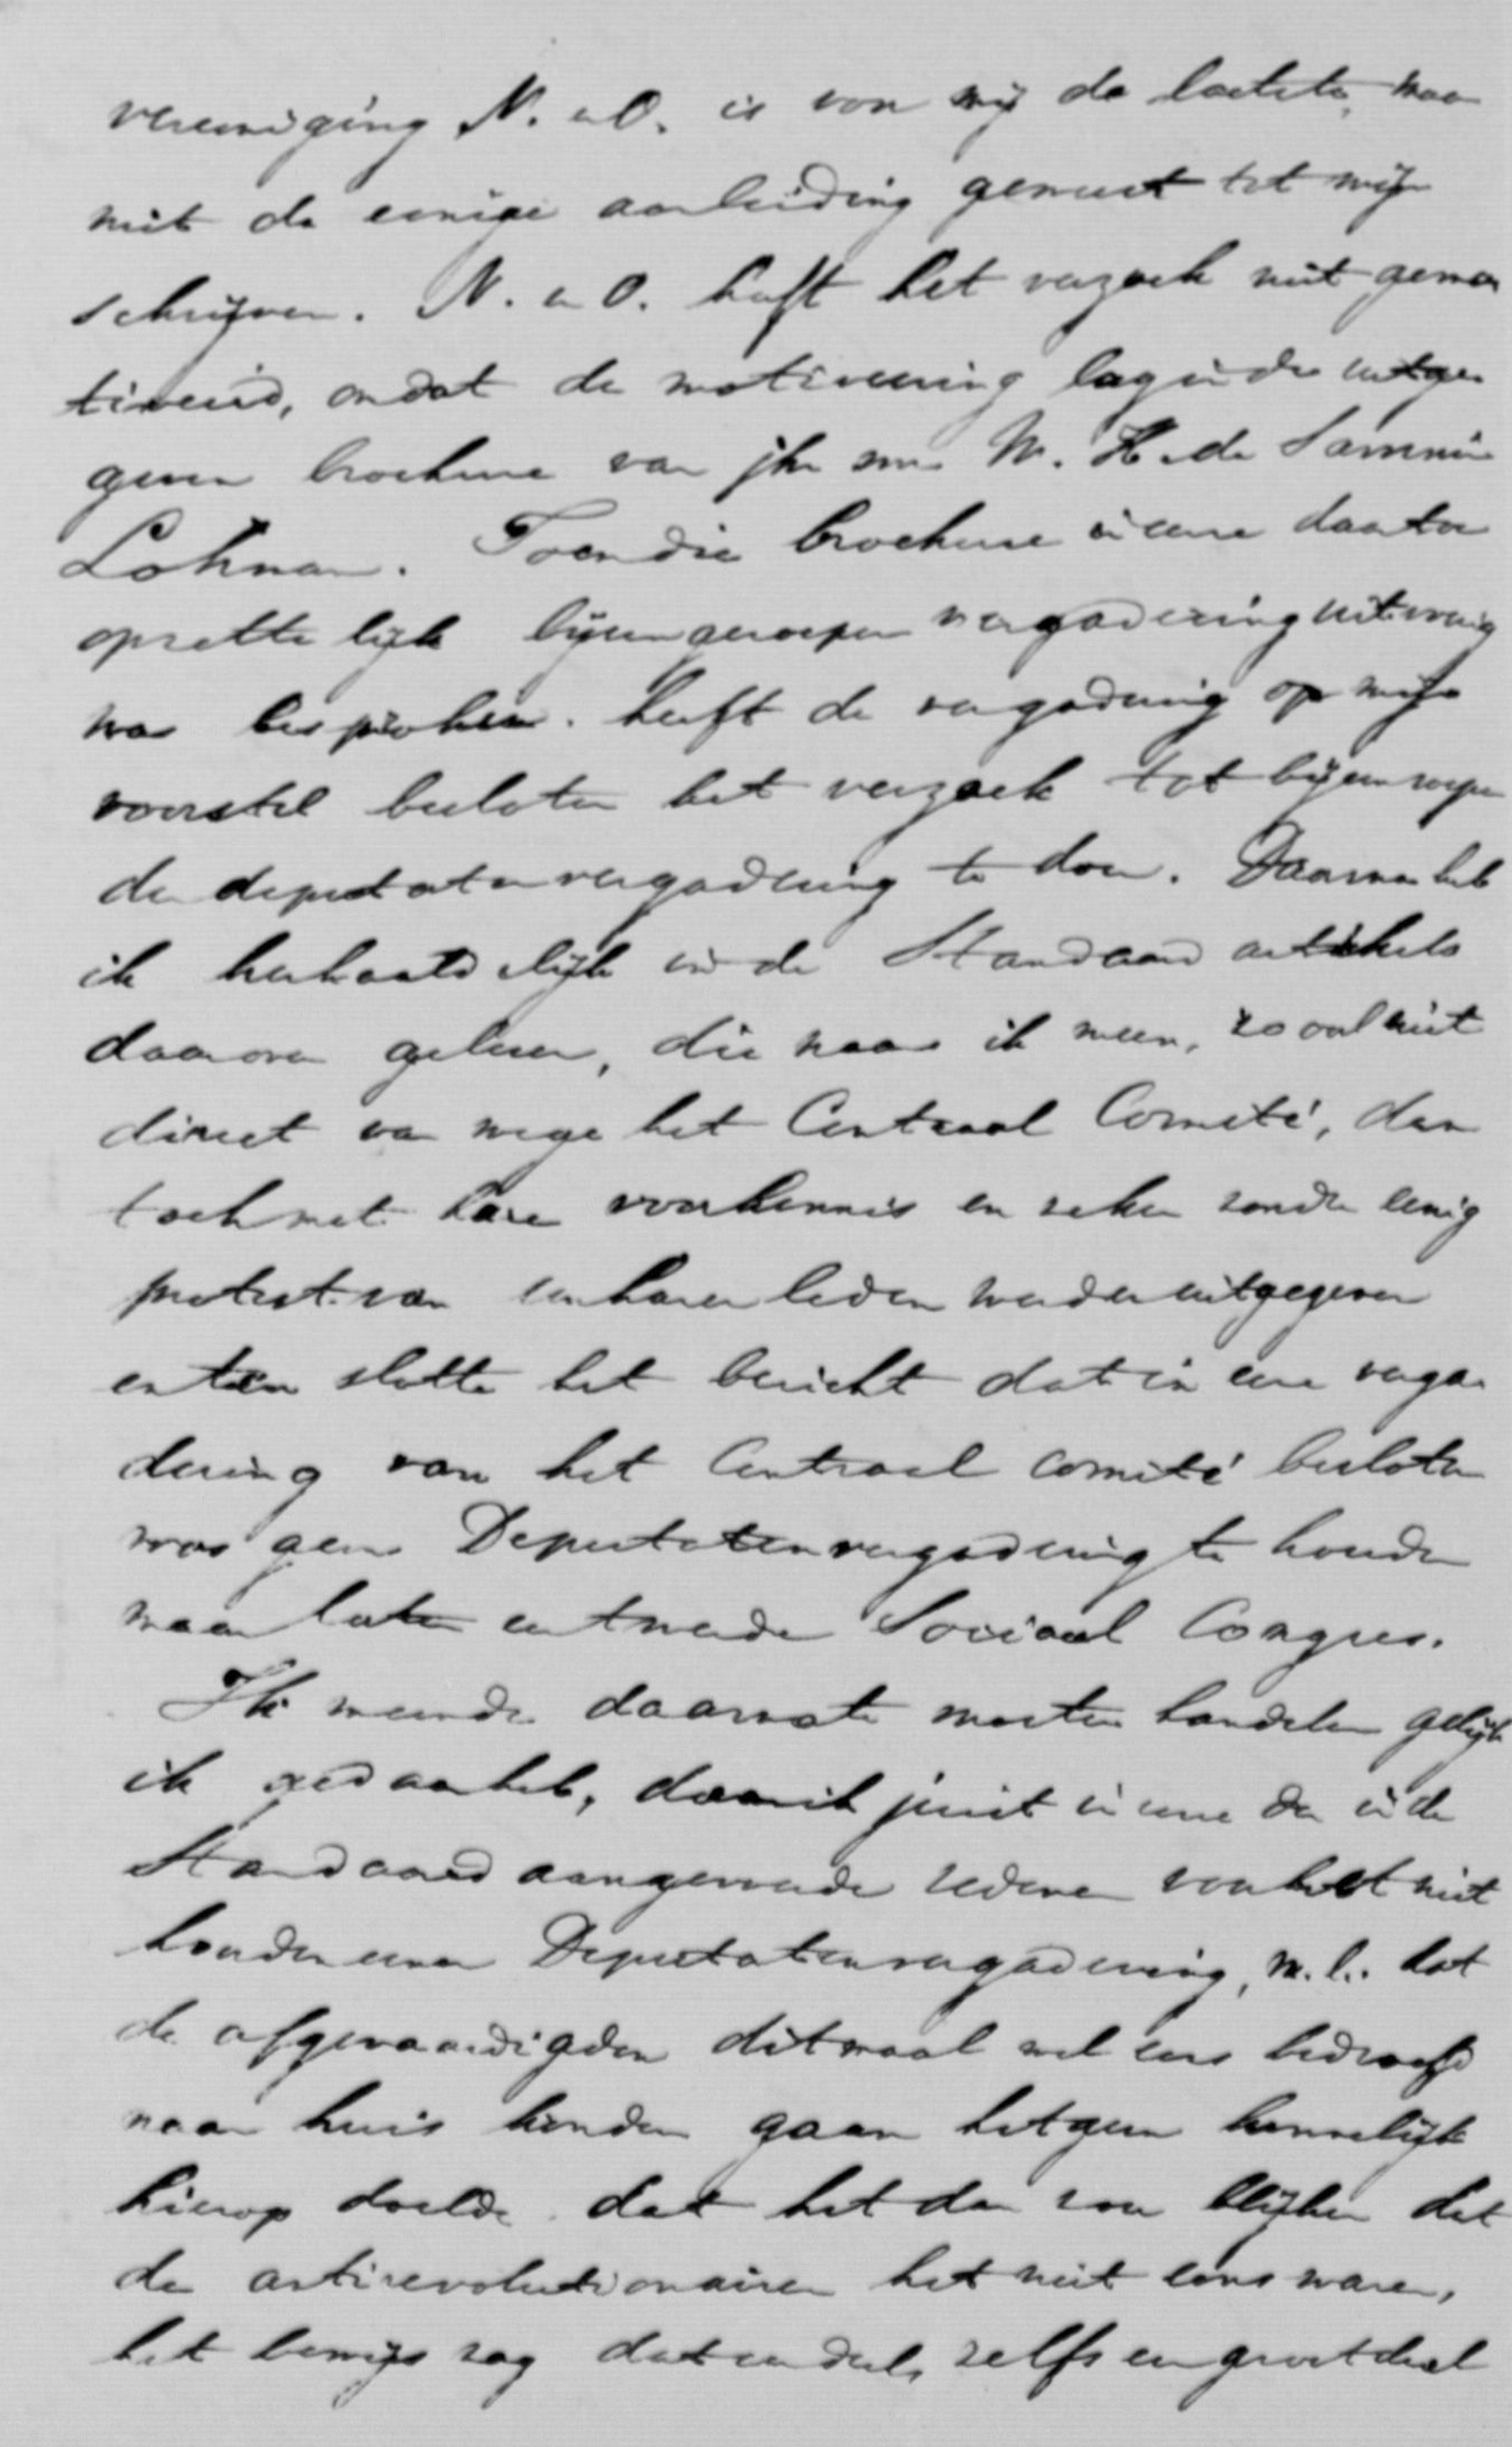 vereeniging N. e O. is van mij de laatste, maar
niet de eenige aanleiding geweest tot mijn
schrijven. N. e O. heeft het verzoek niet gemo
tiveerd, omdat de motiveering lag in de uitge
geven brochure van jhr mr W. H. de Savornin
Lohman. Toen die brochure in eene daartoe
opzettelijk bijeengeroepen vergadering uitvoerig
was besproken. heeft de vergadering op mijn
voorstel besloten het verzoek tot bijeenroepen
der deputatenvergadering te doen. Daarna heb
ik herhaaldelijk in de Standaard artikels
daarover gelezen, die naar ik meen, zoo al niet
direct van wege het Centraal Comité, dan
toch met hare voorkennis en zeker zonder eenig
protest van een harer leden werden uitgegeven
en ten slotte het bericht dat in eene verga
dering van het Centraal comité besloten
was geen Deputatenvergadering te houden
maar later een tweede Sociaal Congres.
Ik meende daarna te moeten handelen gelijk
ik gedaan heb, daar ik juist in eene der in de
Standaard aangevoerde redenen voor het niet
houden eener Deputatenvergadering, n.l. dat
de afgevaardigden ditmaal wel eens bedroefd
naar huis konden gaan hetgeen kennelijk
hierop doelde dat het dan zou blijken dat
de antirevolutionairen het niet eens waren,
het bewijs zag dat een deel, zelfs een groot deel